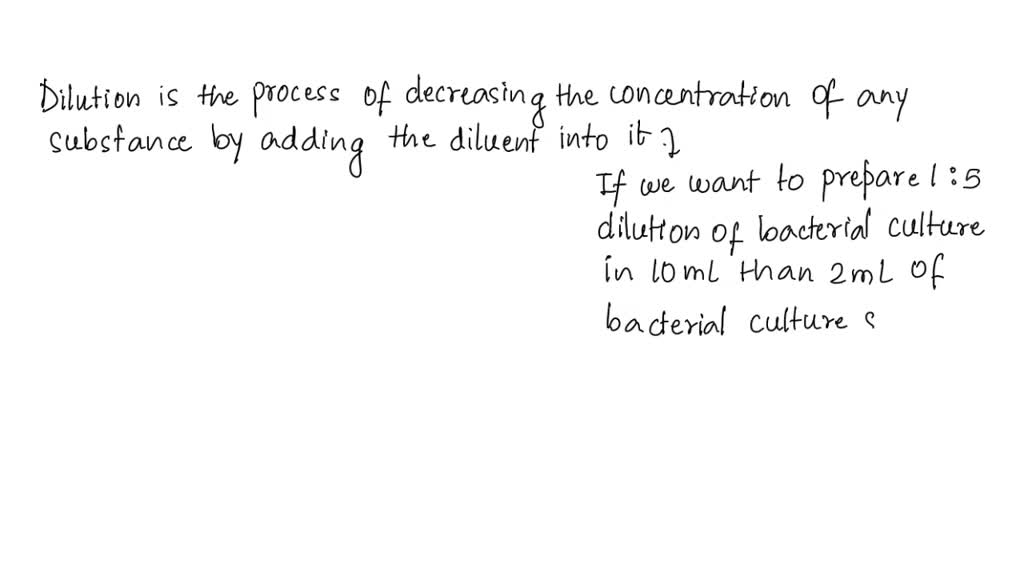 Dilution is the process of decreasing the concentration of any
substance by adding the diluent into it.
If we want to prepare 1:5
dilution of bacterial culture
in 10mL than 2mL of
bacterial culture s